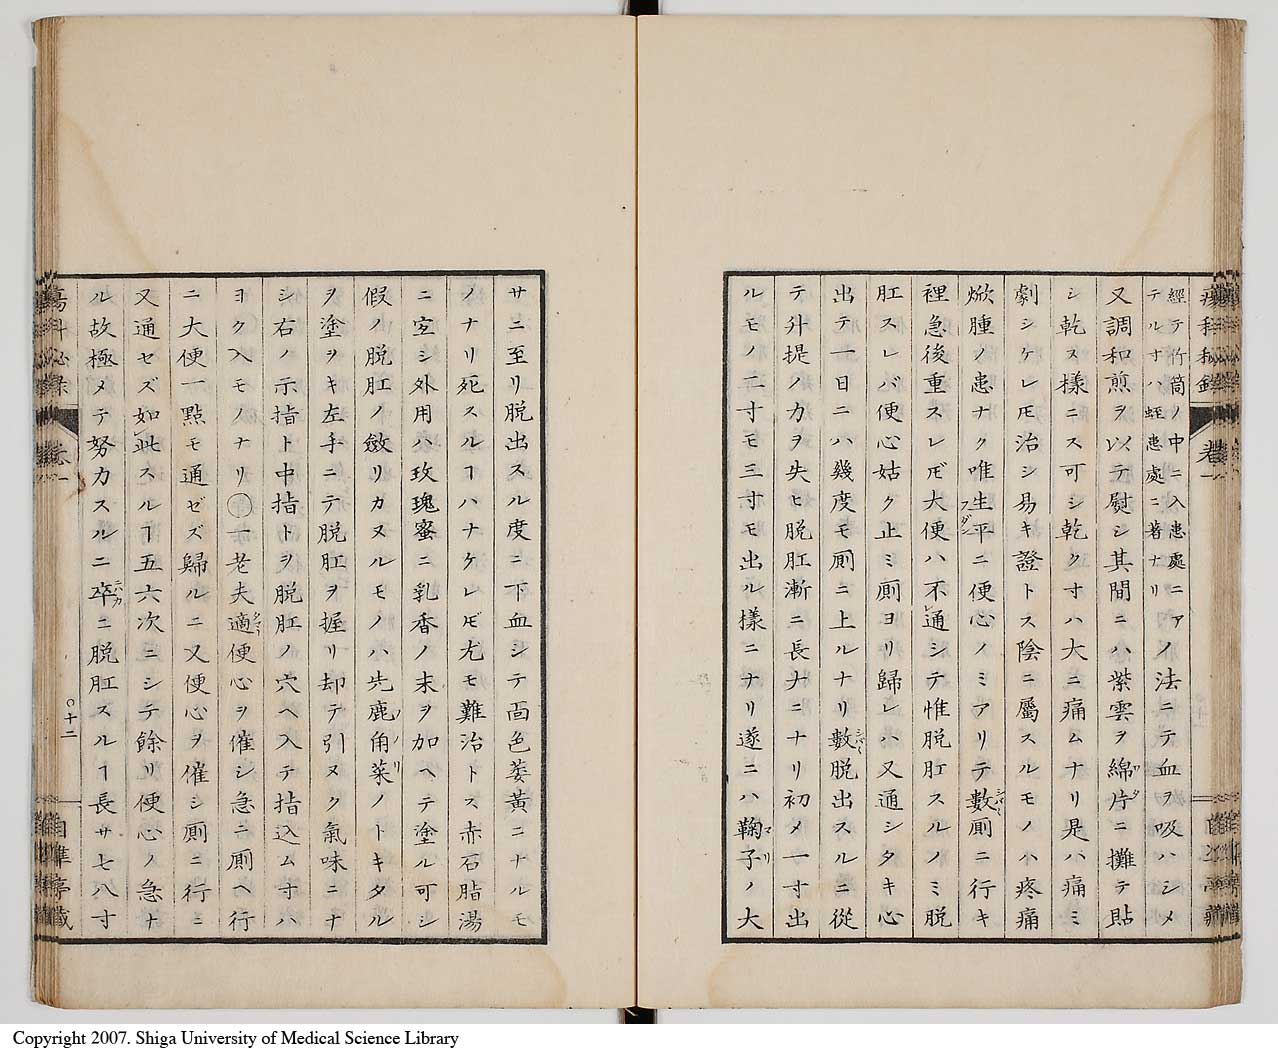 經テ竹筒ノ中ニ入患處ニアノ法ニテ血ヲ吸ハシメ
テル寸ハ蛭患處ニ著ナリ
又調和煎ヲ以テ熨シ其間ニハ紫雲ヲ綿片ニ攤テ貼
シ乾ス樣ニス可シ乾ク寸ハ大ニ痛ムナリ是ハ痛ミ
劇シケレ𪜈治シ易キ證トス陰ニ屬スルモノハ疼痛
焮腫ノ患ナク唯生平ニ便心ノミアリテ數厠ニ行キ
裡急後重スレ𪜈大便ハ不通シテ惟脱肛スルノミ脱
肛スレバ便心姑ク止ミ厠ヨリ歸レハ又通シタキ心
出テ一日ニハ幾度モ厠ニ上ルナリ數脱出スルニ從
テ升提ノカヲ失ヒ脱肛漸ニ長大ニナリ初メ一寸出
ルモノ二寸モ三寸モ出ル樣ニナリ遂ニハ鞠子ノ大
サニ至リ脱出スル度ニ下血シテ面色萎黄ニナルモ
ノナリ死スルヿハナケレ𪜈尤モ難治トス赤石脂湯
ニ宜シ外用ハ玫瑰蜜ニ乳香ノ末ヲ加ヘテ塗ル可シ
假ノ脱肛ノ斂リカヌルモノハ先鹿角菜ノトキタル
ヲ塗ヲキ左手ニテ脱肛ヲ握リ却テ引ヌク氣味ニナ
シ右ノ示指ト中指トヲ脱肛ノ穴ヘ入テ指込ム寸ハ
ヨク入モノナリ○一老夫適便心ヲ催シ急ニ厠ヘ行
ニ大便一點モ通ゼズ歸ルニ又便心ヲ催シ厠ニ行ニ
又通セズ如此スルヿ五六次ニシテ餘リ便心ノ急ナ
ル故極メテ努力スルニ卒ニ脱肛スルヿ長サ七八寸
○十二
Copyright 2007. Shiga University of Medical Science Library